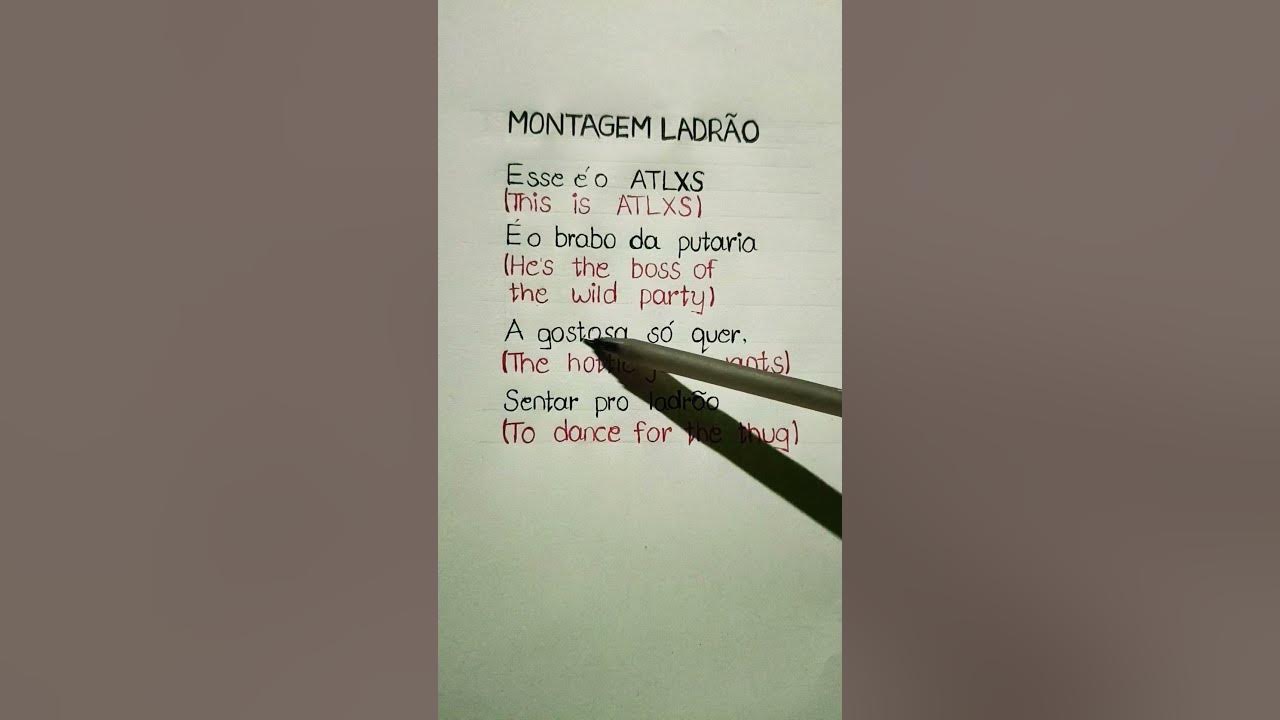 MONTAGEM LADRÃO
Esse é o ATLXS
(This is ATLXS)
É o brabo da putaria
(He's the boss of
the wild party)
A gostosa só quer,
(The hottie
Sentar pro ladrão
(To dance for the thug)